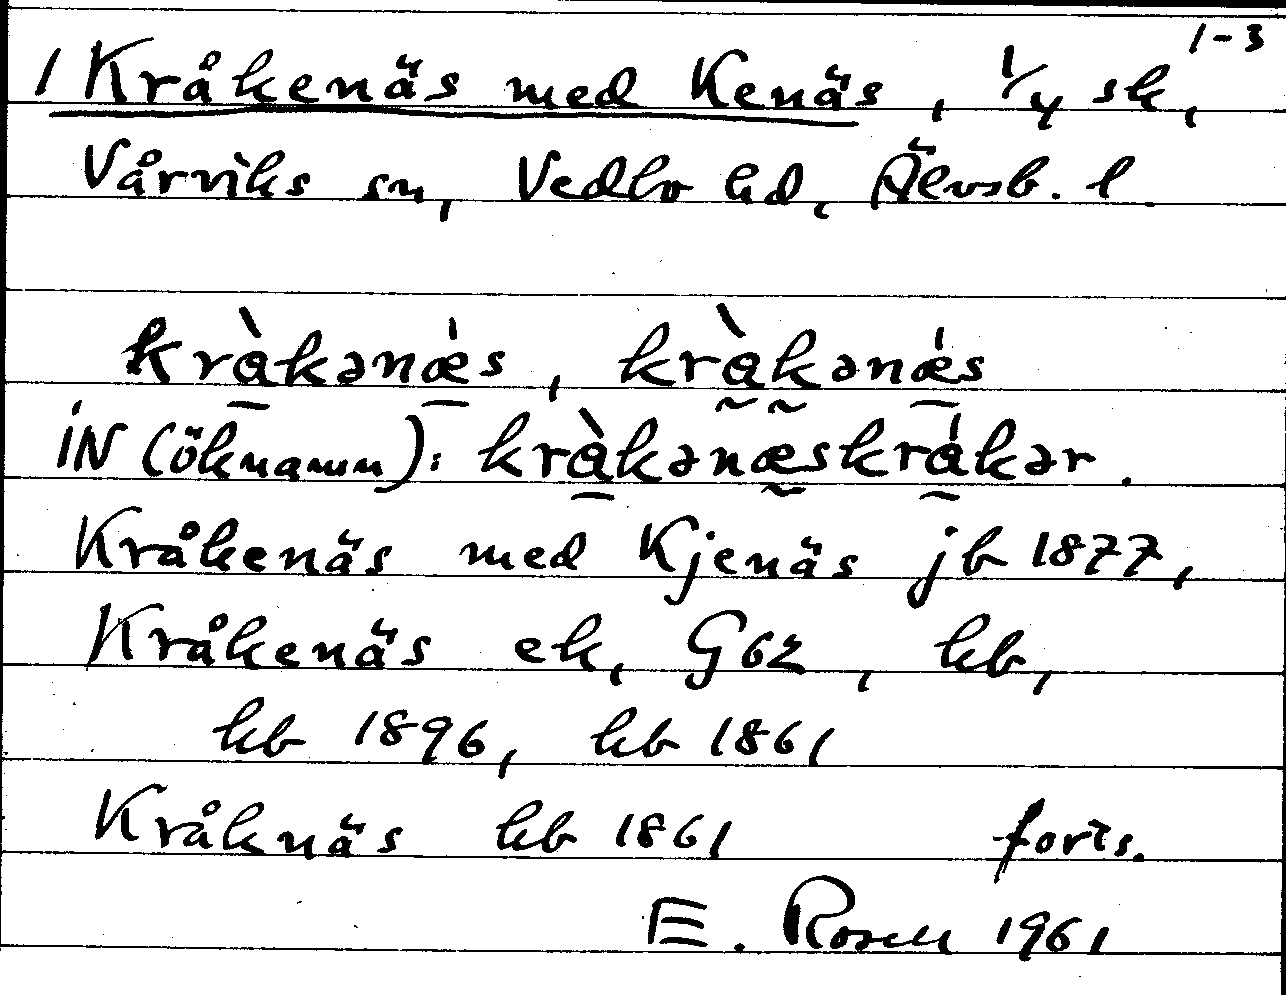 1-3
1 Kråkenäs med Kenäs, 1/4 sk,
Vårviks sn, Vedbo hd, Älvsb. l.
kràkənǽs, kràkənǽs
iN (öknamn): kràkənæskrákər.
Kråkenäs med Kjenäs jb 1877,
Kråkenäs ek, G62, kb,
hb 1896, hb 1861
Kråknäs hb 1861 forts.
E. Rosell 1961